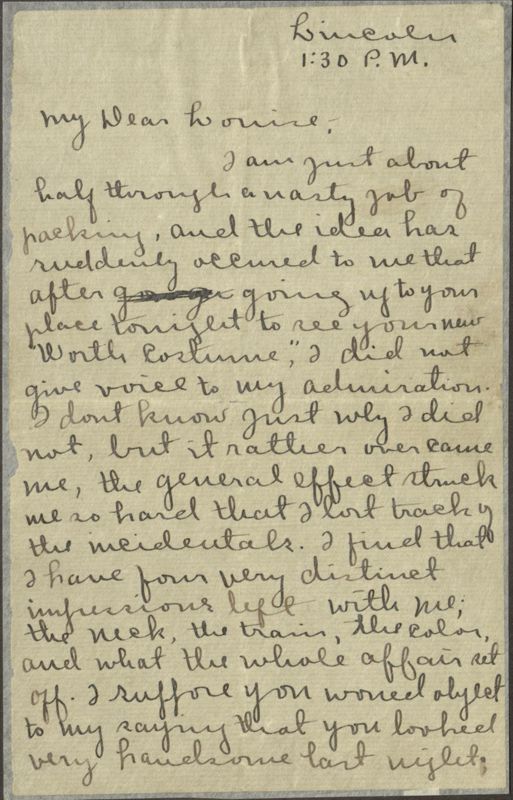 Lincoln
1:30 P.M.
My Dear Louise,
I am just about
half through a nasty job of
packing, and the idea has
suddenly occured to me that
after going up to your
place tonight to see your new
"Worth Costume," I did not
give voice to my admiration.
I dont know just why I did
not, but it rather overcame
me, the general effect struck
me so hard that I lost track of
the incidentals. I find that
I have four very distinct
impressions left with me;
the neck, the train, the color,
and what the whole affair set
off. I suppose you woued object
to my saying that you looked
very handsome last night;